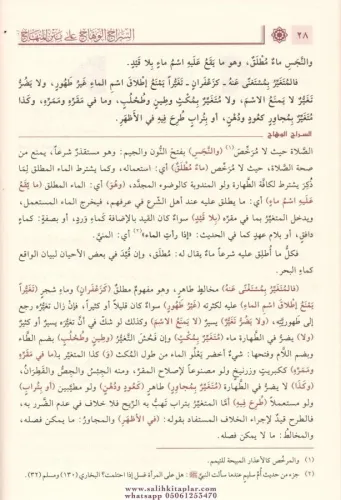 ٢٨
السراج الوهاج على متن المنهاج
والنَّجَسِ ماءٌ مُطْلَقٌ، وهو ما يَقَعُ عَلَيهِ اسْمُ ماءٍ بِلا قَيْدٍ.
فالمُتَغَيِّرُ بِمُسْتَغْنًى عَنْهُ ـ كَزَعْفَرانٍ ـ تَغَيُّراً يَمْنَعُ إطْلاقَ اسْمِ الماءِ غَيْرُ طَهُورٍ، ولا يَضُرُّ
تَغَيُّرٌ لا يَمنَعُ الاسْمَ، ولا مُتَغَيِّرٌ بِمُكْثٍ وطِينٍ وطُحْلُبٍ، وما في مَقَرِّهِ ومَمَرِّهِ، وكَذا
مُتَغَيِّرٌ بِمُجاوِرٍ كعُودٍ ودُهْنٍ، أو بتُرابٍ طُرِحَ فِيهِ في الأظْهَرِ.
السراج الوهاج
الصَّلاة حيث لا مُرَخِّصَ(١) (والنَّجَسِ) بفتح النُّون والجيم: وهو مستقذرٌ شرعاً، يمنع من
صحة الصَّلاة، حيث لا مُرَخِّصَ (ماءٌ مُطْلَقٌ) أي: استعماله، وكما يشترط الماء المطلق لِمَا
ذُكِرَ يشترط لكافَّة الطَّهارة ولو المندوبة كالوضوء المجدَّد، (وهُوَ) أي: الماء المطلق (ما يَقَعُ
عَلَيهِ اسْمُ ماءٍ) أي: ما يطلق عليه عند أهل الشرع في عرفهم، فيخرج الماء المستعمل،
ويدخل المتغيِّر بما في مقرِّه (بِلا قَيْدٍ) سواءٌ كان القيد بالإضافة كماءِ وَردٍ، أو بصفةٍ: كماءٍ
دافقٍ، أو بلام عهدٍ كما في الحديث: «إذا رأت الماء»(٢) أي: المنيَّ.
فكلُّ ما أُطلِق عليه شرعاً ماءٌ يقال له: مُطلَق، وإن قُيِّدَ في بعض الأحيان لبيان الواقع
كماء البحر.
(فالمُتَغَيِّرُ بِمُسْتَغْنًى عَنْهُ) مخالطٍ طاهرٍ، وهو مفهومُ مطلقٍ (كَزَعْفَرانٍ) وماءِ شجرٍ (تَغَيُّراً
يَمْنَعُ إطْلاقَ اسْمِ الماءِ) عليه لكثرته (غَيْرُ طَهُورٍ) سواءٌ كان قليلاً أو كثيراً، فإنْ زال تغيُّره رجع
إلى طهوريَّته، (ولا يَضُرُّ تَغَيُّرٌ) يسيرٌ (لا يَمنَعُ الاسْمَ) وكذلك لو شكَّ في أنَّ تغيُّره يسيرٌ أو كثيرٌ
(ولا) يضرُّ في الطَّهارة ماء (مُتَغَيِّرٌ بِمُكْثٍ) وإن فَحُش التَّغيُّر (وطِينٍ وطُحْلُبٍ) بضم الطَّاء
وبضم اللَّام وفتحها: شيءٌ أخضر يَعْلُو الماء من طول المُكث (وَ) كذا المتغيّر بـ(ما في مَقَرِّهِ
ومَمَرِّهِ) ككبريتٍ وزرنيخٍ ولو مصنوعاً لإصلاح المقرِّ، ومنه الجِبْس والجِصُّ والقَطِرَانُ،
(وكَذا) لا يضرُّ في الطَّهارة (مُتَغَيِّرٌ بِمُجاوِرٍ) طاهرٍ (كعُودٍ ودُهْنٍ) ولو مطيَّبين (أو بتُرابٍ)
ولو مستعملاً (طُرِحَ فِيهِ) أمَّا المتغيِّر بترابٍ تهبُّ به الرِّيح فلا خلاف في عدم الضَّرر به،
فالطرح قيدٌ لإجراء الخلاف المستفاد بقوله: (في الأظْهَرِ) والمجاورُ: ما يمكن فصله،
والمخالط: ما لا يمكن فصله.
(١) والمرخّص كالأعذار المبيحة للتيمم.
(٢) جزء من حديث أم سليم عندما سألت النبي ﷺ: هل على المرأة غسل إذا احتلمت؟ البخاري (١٣٠) ومسلم (٣٢).
www.salihkitaplar.com
whatsapp 05061253470